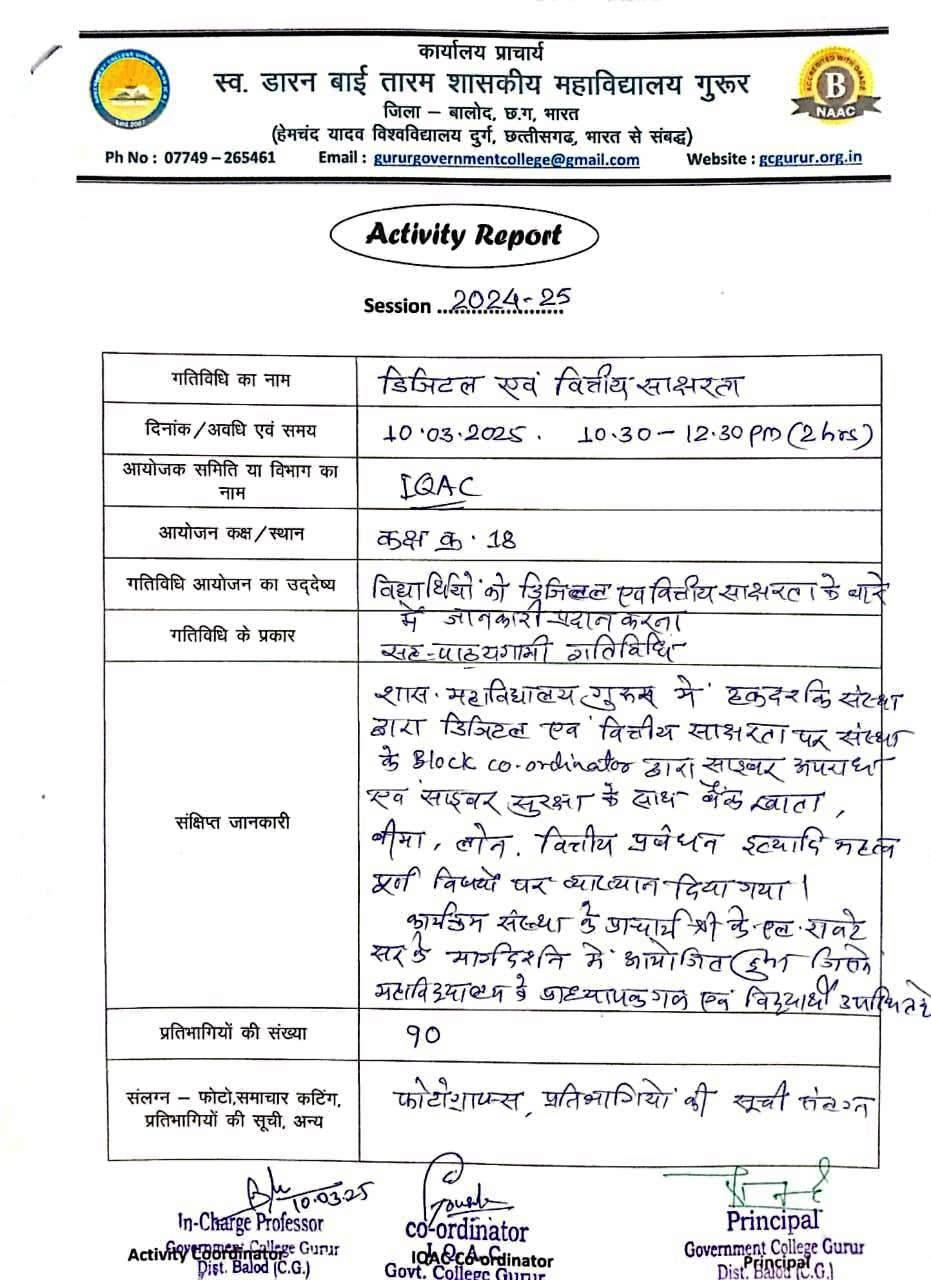 कार्यालय प्राचार्य
स्व. डारन बाई तारम शासकीय महाविद्यालय गुरूर
जिला – बालोद, छ.ग, भारत
(हेमचंद यादव विश्वविद्यालय दुर्ग, छत्तीसगढ, भारत से संबद्ध)
Ph No : 07749 – 265461 Email : gururgovernmentcollege@gmail.com Website : gcgurur.org.in
ACCREDITED WITH GRADE
B
NAAC
Activity Report
Session ...2024-25
गतिविधि का नाम डिजिटल एवं वित्तीय साक्षरता
दिनांक/अवधि एवं समय 10.03.2025. 10.30 – 12.30 PM (2 hrs)
आयोजक समिति या विभाग का
नाम
IQAC
आयोजन कक्ष/स्थान कक्ष क्र. 18
गतिविधि आयोजन का उद्देष्य विद्यार्थियों को डिजिटल एवं वित्तीय साक्षरता के बारे
में जानकारी प्रदान करना
गतिविधि के प्रकार सह-पाठ्यगामी गतिविधि
संक्षिप्त जानकारी
शास. महाविद्यालय गुरूर में हकदर्शक संस्था
द्वारा डिजिटल एवं वित्तीय साक्षरता पर संस्था
के Block co-ordinator द्वारा साइबर अपराध
एवं साइबर सुरक्षा के साथ बैंक खाता,
बीमा, लोन, वित्तीय प्रबंधन इत्यादि महत्व
पूर्ण विषयों पर व्याख्यान दिया गया।
कार्यक्रम संस्था के प्राचार्य श्री के.एल. रावटे
सर के मार्गदर्शन में आयोजित हुआ जिसमें
महाविद्यालय के प्राध्यापकगण एवं विद्यार्थी उपस्थित रहे
प्रतिभागियों की संख्या 90
संलग्न – फोटो,समाचार कटिंग,
प्रतिभागियों की सूची, अन्य
फोटोग्राफ्स, प्रतिभागियों की सूची संलग्न
10.03.25
In-Charge Professor
Government College Gurur
Dist. Balod (C.G.)
Activity Coordinator
co-ordinator
I.Q.A.C.
Govt. College Gurur
IQAC Co-ordinator
Principal
Government College Gurur
Dist. Balod (C.G.)
Principal